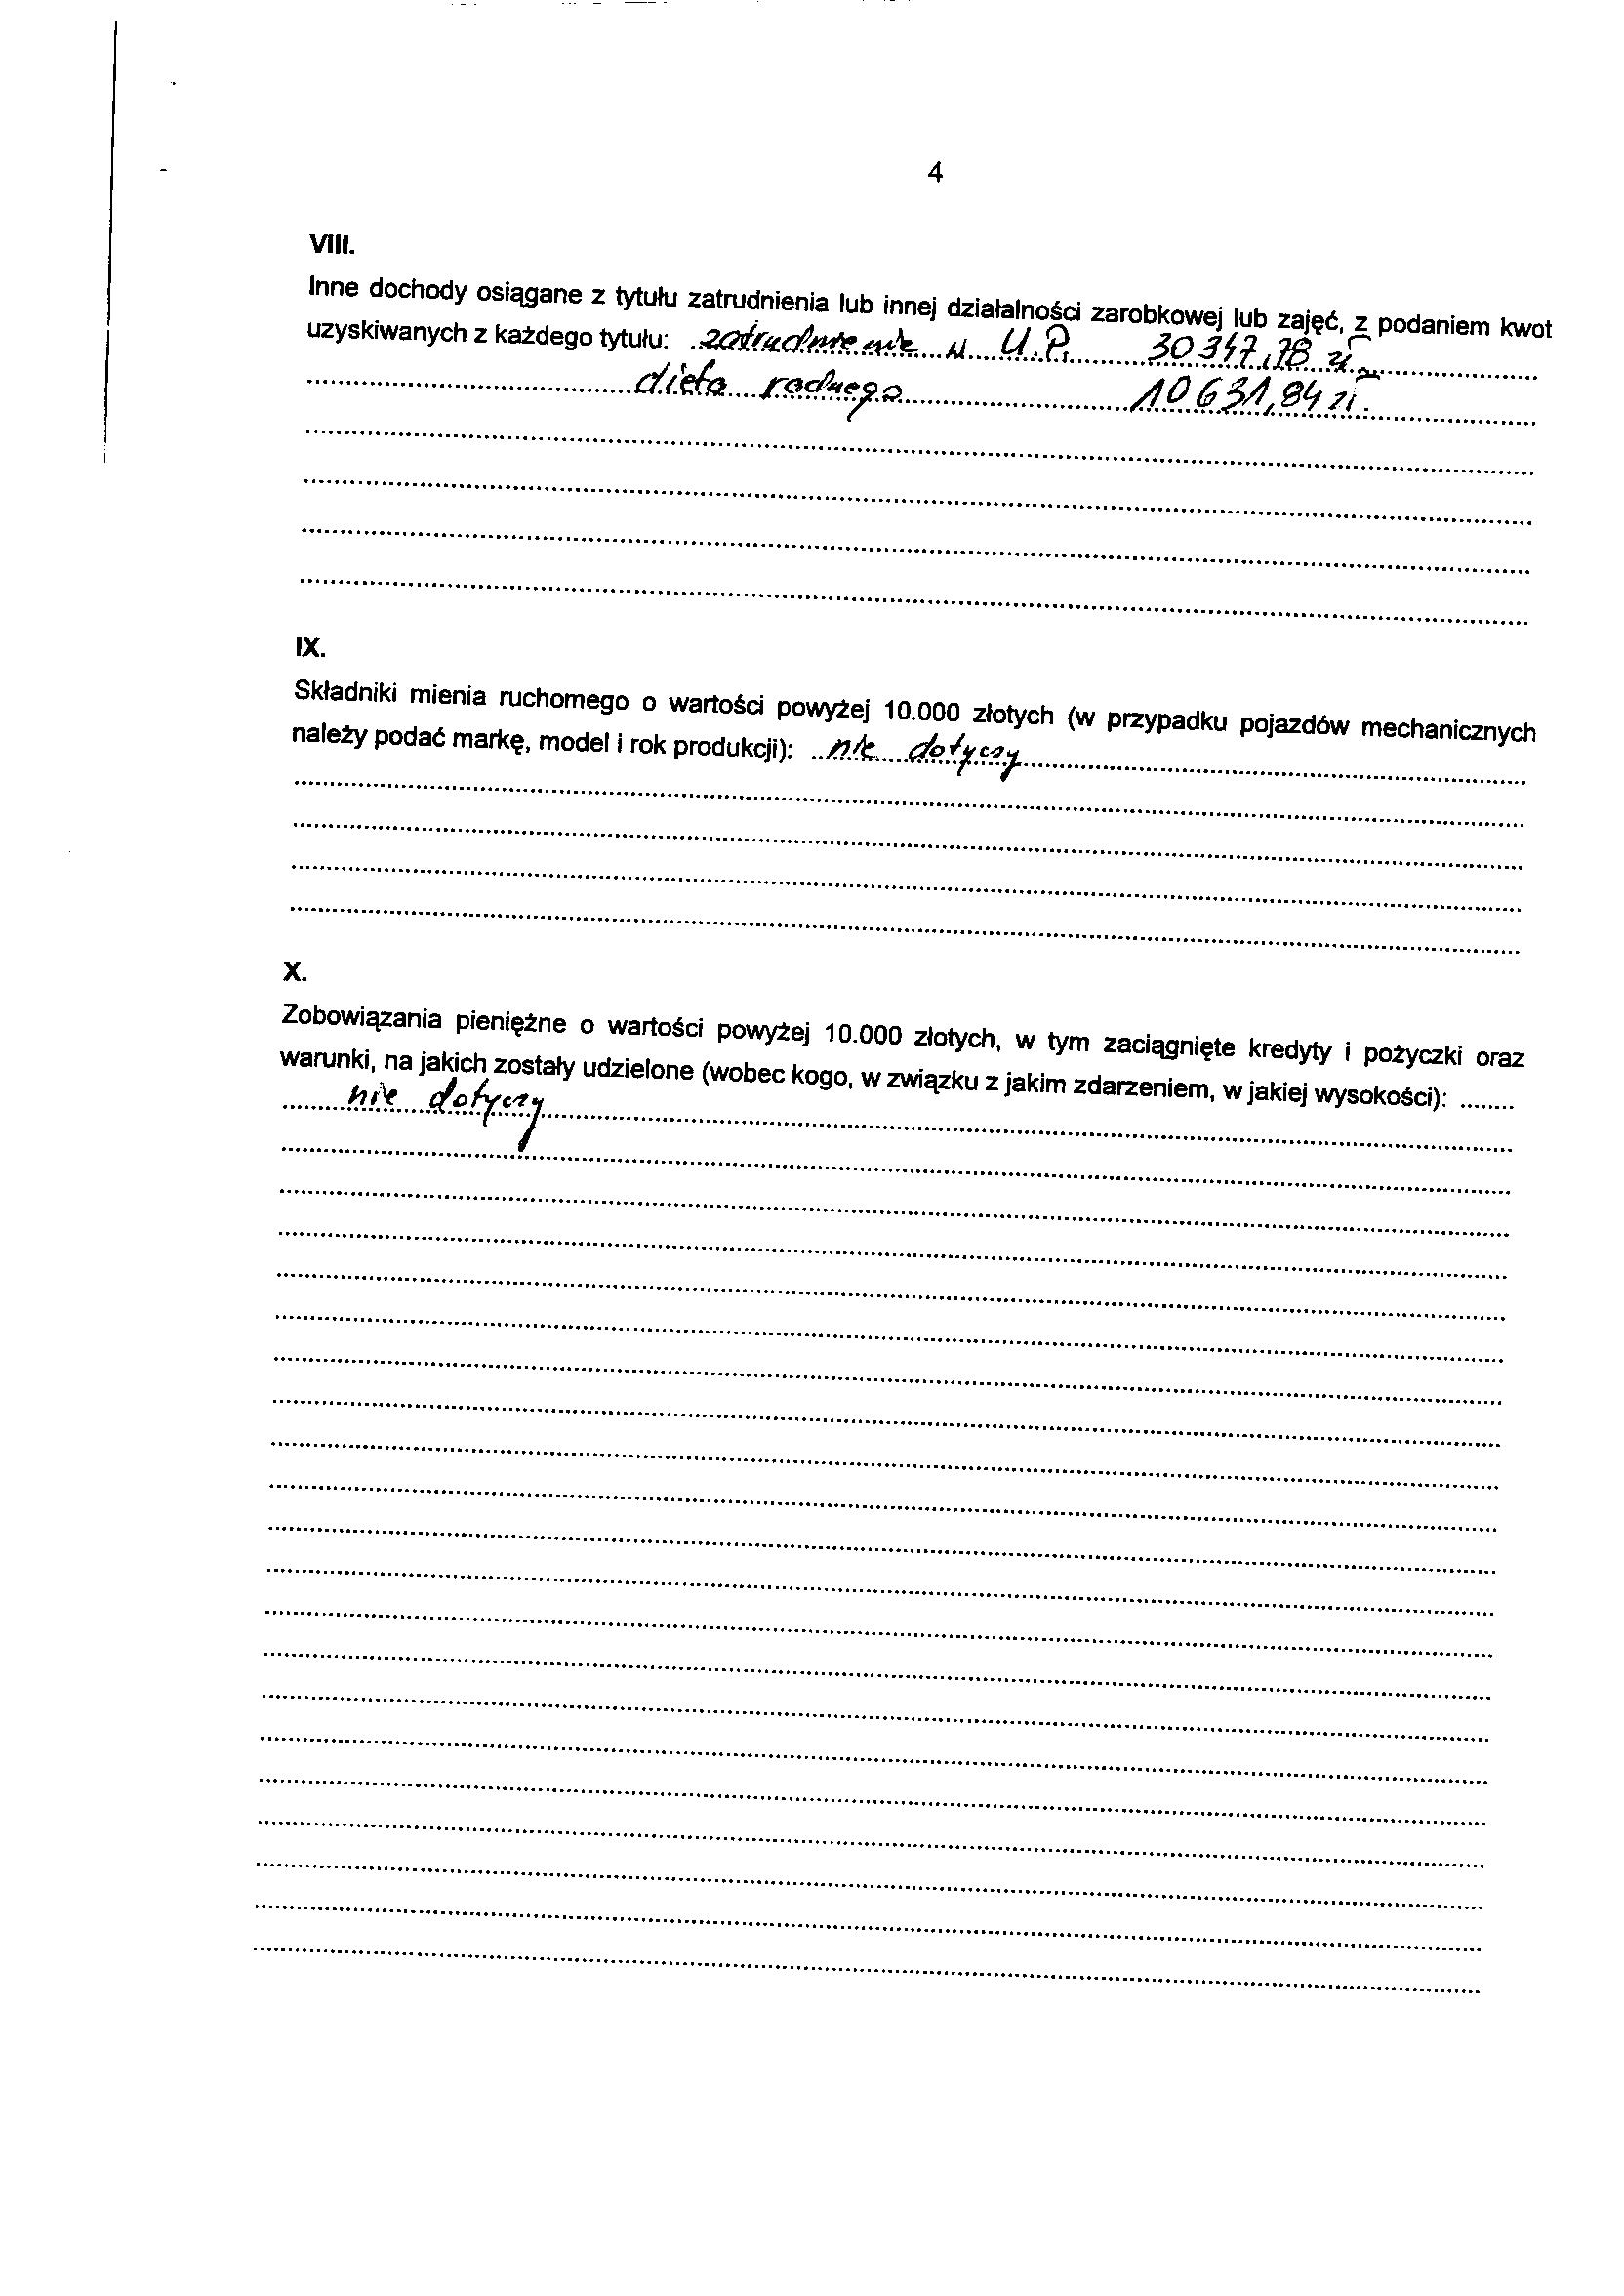 4
VIII.
Inne dochody osiągane z tytułu zatrudnienia lub innej działalności zarobkowej lub zajęć, z podaniem kwot
uzyskiwanych z każdego tytułu: zatrudnienie w U.P. 30 347,78 zł
dieta radnego 10 631,84 zł.
IX.
Składniki mienia ruchomego o wartości powyżej 10.000 złotych (w przypadku pojazdów mechanicznych
należy podać markę, model i rok produkcji): nie dotyczy
X.
Zobowiązania pieniężne o wartości powyżej 10.000 złotych, w tym zaciągnięte kredyty i pożyczki oraz
warunki, na jakich zostały udzielone (wobec kogo, w związku z jakim zdarzeniem, w jakiej wysokości):
nie dotyczy